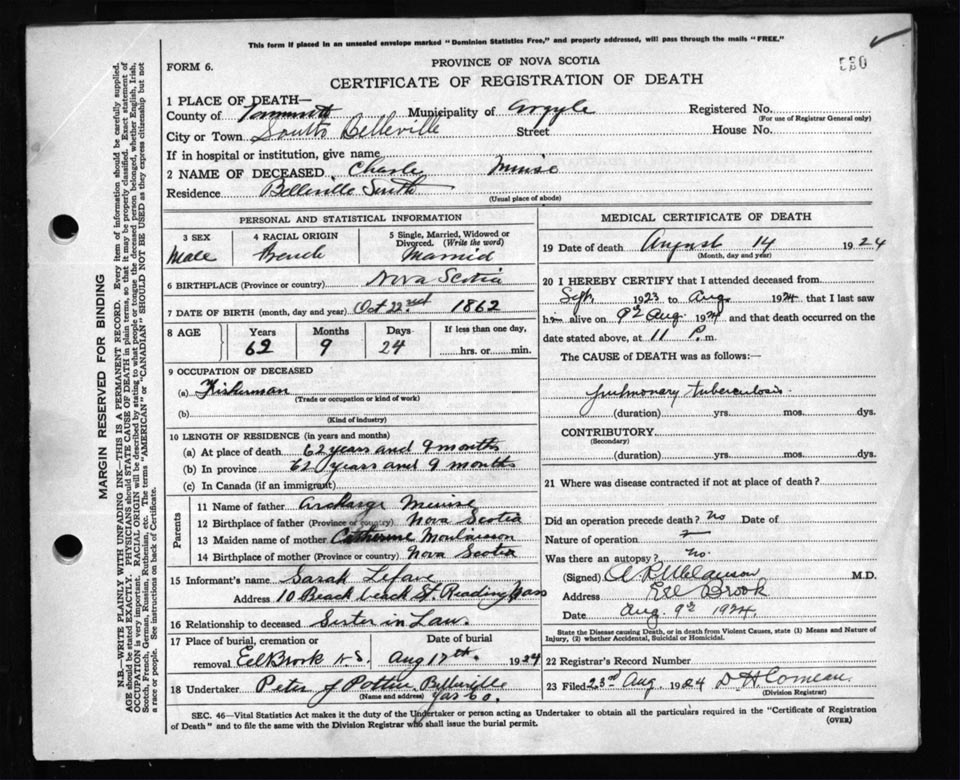 This form if placed in an unsealed envelope marked "Dominion Statistics Free," and properly addressed, will pass through the mails "FREE."
FORM 6.
PROVINCE OF NOVA SCOTIA
CERTIFICATE OF REGISTRATION OF DEATH
1 PLACE OF DEATH—
County of Yarmouth Municipality of Argyle Registered No.
(For use of Registrar General only)
City or Town South Belleville Street House No.
If in hospital or institution, give name
2 NAME OF DECEASED Charles Muise
Residence Belleville South
(Usual place of abode)
PERSONAL AND STATISTICAL INFORMATION
3 SEX 4 RACIAL ORIGIN 5 Single, Married, Widowed or Divorced. (Write the word)
Male French Married
6 BIRTHPLACE (Province or country) Nova Scotia
7 DATE OF BIRTH (month, day and year) Oct 22nd 1862
8 AGE Years Months Days If less than one day,
62 9 24 hrs. or min.
9 OCCUPATION OF DECEASED
(a) Fisherman
(Trade or occupation or kind of work)
(b)
(Kind of industry)
10 LENGTH OF RESIDENCE (in years and months)
(a) At place of death 62 years and 9 months
(b) In province 62 years and 9 months
(c) In Canada (if an immigrant)
Parents
11 Name of father Muise
12 Birthplace of father (Province or country) Nova Scotia
13 Maiden name of mother Catherine
14 Birthplace of mother (Province or country) Nova Scotia
15 Informant's name Sarah Lefave
Address 10 Beach St. Reading Mass
16 Relationship to deceased Sister in Law
17 Place of burial, cremation or removal Date of burial
Eel Brook N.S. Aug 17th. 1924
18 Undertaker Peter J Pottier Belleville
(Name and address) Yar Co.
MEDICAL CERTIFICATE OF DEATH
19 Date of death August 14 1924
(Month, day and year)
20 I HEREBY CERTIFY that I attended deceased from
Sept 1923 to Aug. 1924 that I last saw
him alive on 9th Aug. 1924 and that death occurred on the
date stated above, at 11 P. m.
The CAUSE OF DEATH was as follows:
pulmonary tuberculosis.
(duration) yrs. mos. dys.
CONTRIBUTORY
(Secondary)
(duration) yrs. mos. dys.
21 Where was disease contracted if not at place of death?
Did an operation precede death? No Date of
Nature of operation
Was there an autopsy? No.
(Signed) M.D.
Address Eel Brook
Date Aug. 9th 1924
State the Disease causing Death, or in death from Violent Causes, state (1) Means and Nature of
Injury, (2) whether Accidental, Suicidal or Homicidal.
22 Registrar's Record Number
23 Filed 23rd Aug 1924 D H Comeau
(Division Registrar)
SEC. 46—Vital Statistics Act makes it the duty of the Undertaker or person acting as Undertaker to obtain all the particulars required in the "Certificate of Registration
of Death" and to file the same with the Division Registrar who shall issue the burial permit.
(OVER)
MARGIN RESERVED FOR BINDING
N.B.—WRITE PLAINLY WITH UNFADING INK—THIS IS A PERMANENT RECORD. Every item of information should be carefully supplied.
AGE should be stated EXACTLY. PHYSICIANS should STATE CAUSE OF DEATH in plain terms, so that it may be properly classified. Exact statement of
OCCUPATION is very important. RACIAL ORIGIN will be described by stating to what people or tongue the deceased person belonged, whether English, Irish,
Scotch, French, German, Russian, Ruthenian, etc. The terms "AMERICAN" or "CANADIAN" SHOULD NOT BE USED as they express citizenship but not
a race or people. See instructions on back of Certificate.